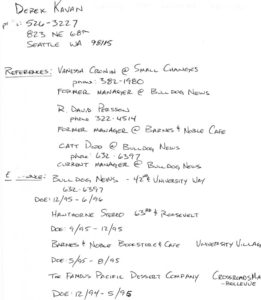 DEREK KAVAN
526-3227
823 NE 68th
SEATTLE WA 98115
REFERENCES: VANESSA CRONIN @ SMALL CHANGES
PHONE: 382-1980
FORMER MANAGER @ BULLDOG NEWS
R. DAVID PERSSON
PHONE 322-4514
FORMER MANAGER @ BARNES & NOBLE CAFE
DODD @ BULLDOG NEWS
PHONE 632-6397
CURRENT MANAGER @ BULLDOG NEWS
BULLDOG NEWS - 42nd UNIVERSITY WAY
632-6397
DOE: 12/95 - 6/96
HAWTHORNE STEREO 63rd & ROOSEVELT
DOE: 9/95 - 12/95
BARNES & NOBLE BOOKSTORE & CAFE UNIVERSITY VILLAG
DOE: 5/95 - 8/95
THE FAMOUS PACIFIC DESSERT COMPANY CROSSROADS
-BELLEVUE
DOE: 12/94 - 5/95